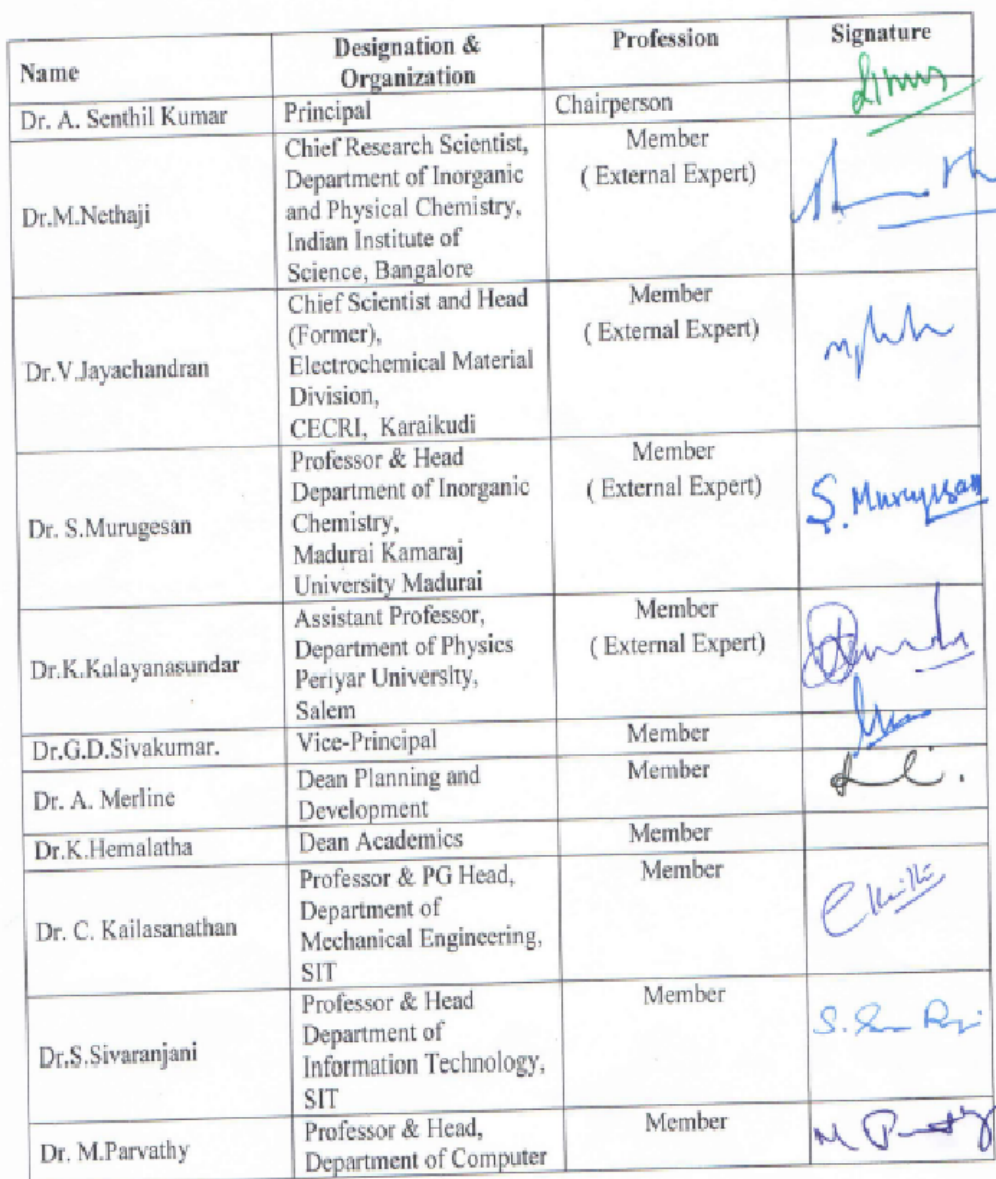 Name
Designation &
Organization
Profession
Signature
Dr. A. Senthil Kumar
Principal
Chairperson
Dr.M.Nethaji
Chief Research Scientist,
Department of Inorganic
and Physical Chemistry,
Indian Institute of
Science, Bangalore
Member
( External Expert)
Dr.V.Jayachandran
Chief Scientist and Head
(Former),
Electrochemical Material
Division,
CECRI, Karaikudi
Member
( External Expert)
Dr. S.Murugesan
Professor & Head
Department of Inorganic
Chemistry,
Madurai Kamaraj
University Madurai
Member
( External Expert)
S. Murugesan
Dr.K.Kalayanasundar
Assistant Professor,
Department of Physics
Periyar University,
Salem
Member
( External Expert)
Dr.G.D.Sivakumar.
Vice-Principal
Member
Dr. A. Merline
Dean Planning and
Development
Member
Dr.K.Hemalatha
Dean Academics
Member
Dr. C. Kailasanathan
Professor & PG Head,
Department of
Mechanical Engineering,
SIT
Member
Dr.S.Sivaranjani
Professor & Head
Department of
Information Technology,
SIT
Member
Dr. M.Parvathy
Professor & Head,
Department of Computer
Member